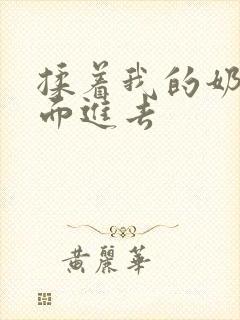 揉着我的奶
而进去
黄丽华